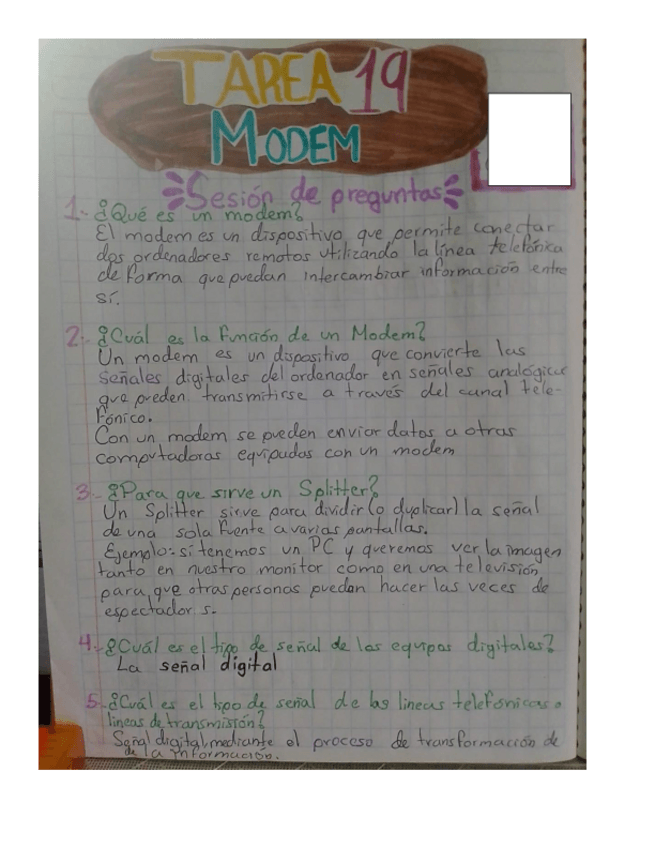 TAREA 19
MODEM
Sesión de preguntas
1.- ¿Qué es un modem?
El modem es un dispositivo que permite conectar
dos ordenadores remotos utilizando la línea telefónica
de forma que puedan intercambiar información entre
sí.
2.- ¿Cuál es la función de un Modem?
Un modem es un dispositivo que convierte las
señales digitales del ordenador en señales analógicas
que pueden transmitirse a través del canal tele-
fónico.
Con un modem se pueden enviar datos a otras
computadoras equipadas con un modem
3.- ¿Para que sirve un Splitter?
Un Splitter sirve para dividir (o duplicar) la señal
de una sola fuente a varias pantallas.
Ejemplo: si tenemos un PC y queremos ver la imagen
tanto en nuestro monitor como en una televisión
para que otras personas puedan hacer las veces de
espectador s.
4.- ¿Cuál es el tipo de señal de los equipos digitales?
La señal digital
5.- ¿Cuál es el tipo de señal de las lineas telefonicas o
lineas de transmisión?
Señal digital mediante el proceso de transformacción de
de la información.